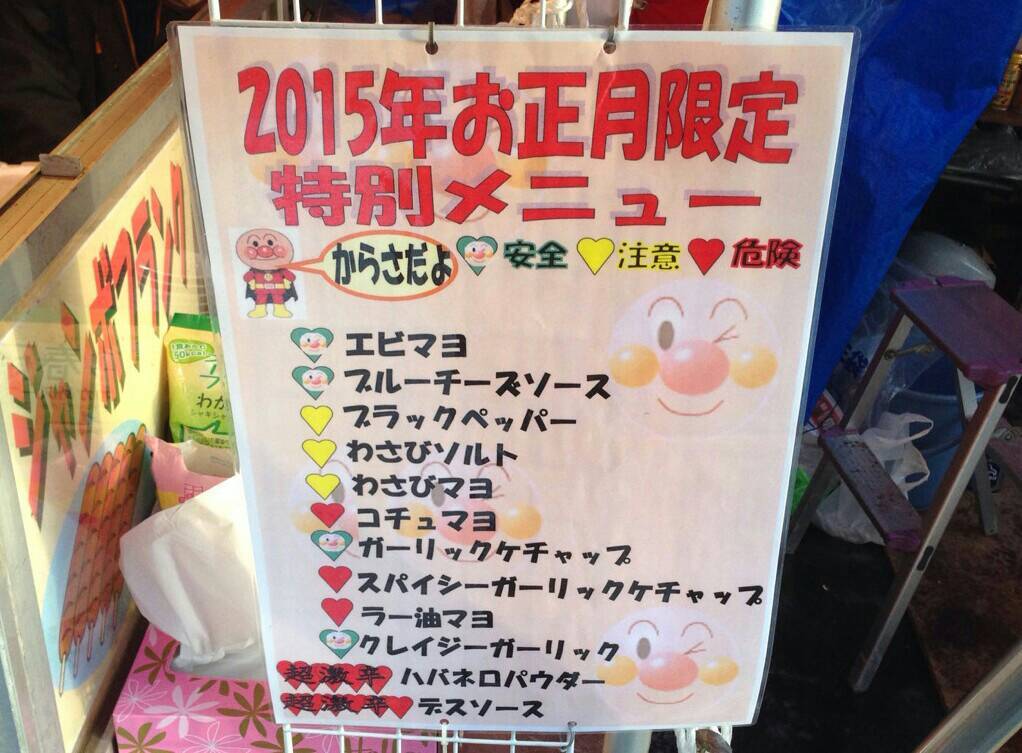 2015年お正月限定
特別メニュー
からさだよ 安全 注意 危険
エビマヨ
ブルーチーズソース
ブラックペッパー
わさびソルト
わさびマヨ
コチュマヨ
ガーリックケチャップ
スパイシーガーリックケチャップ
ラー油マヨ
クレイジーガーリック
超激辛 ハバネロパウダー
超激辛 デスソース
ジャンボフランク